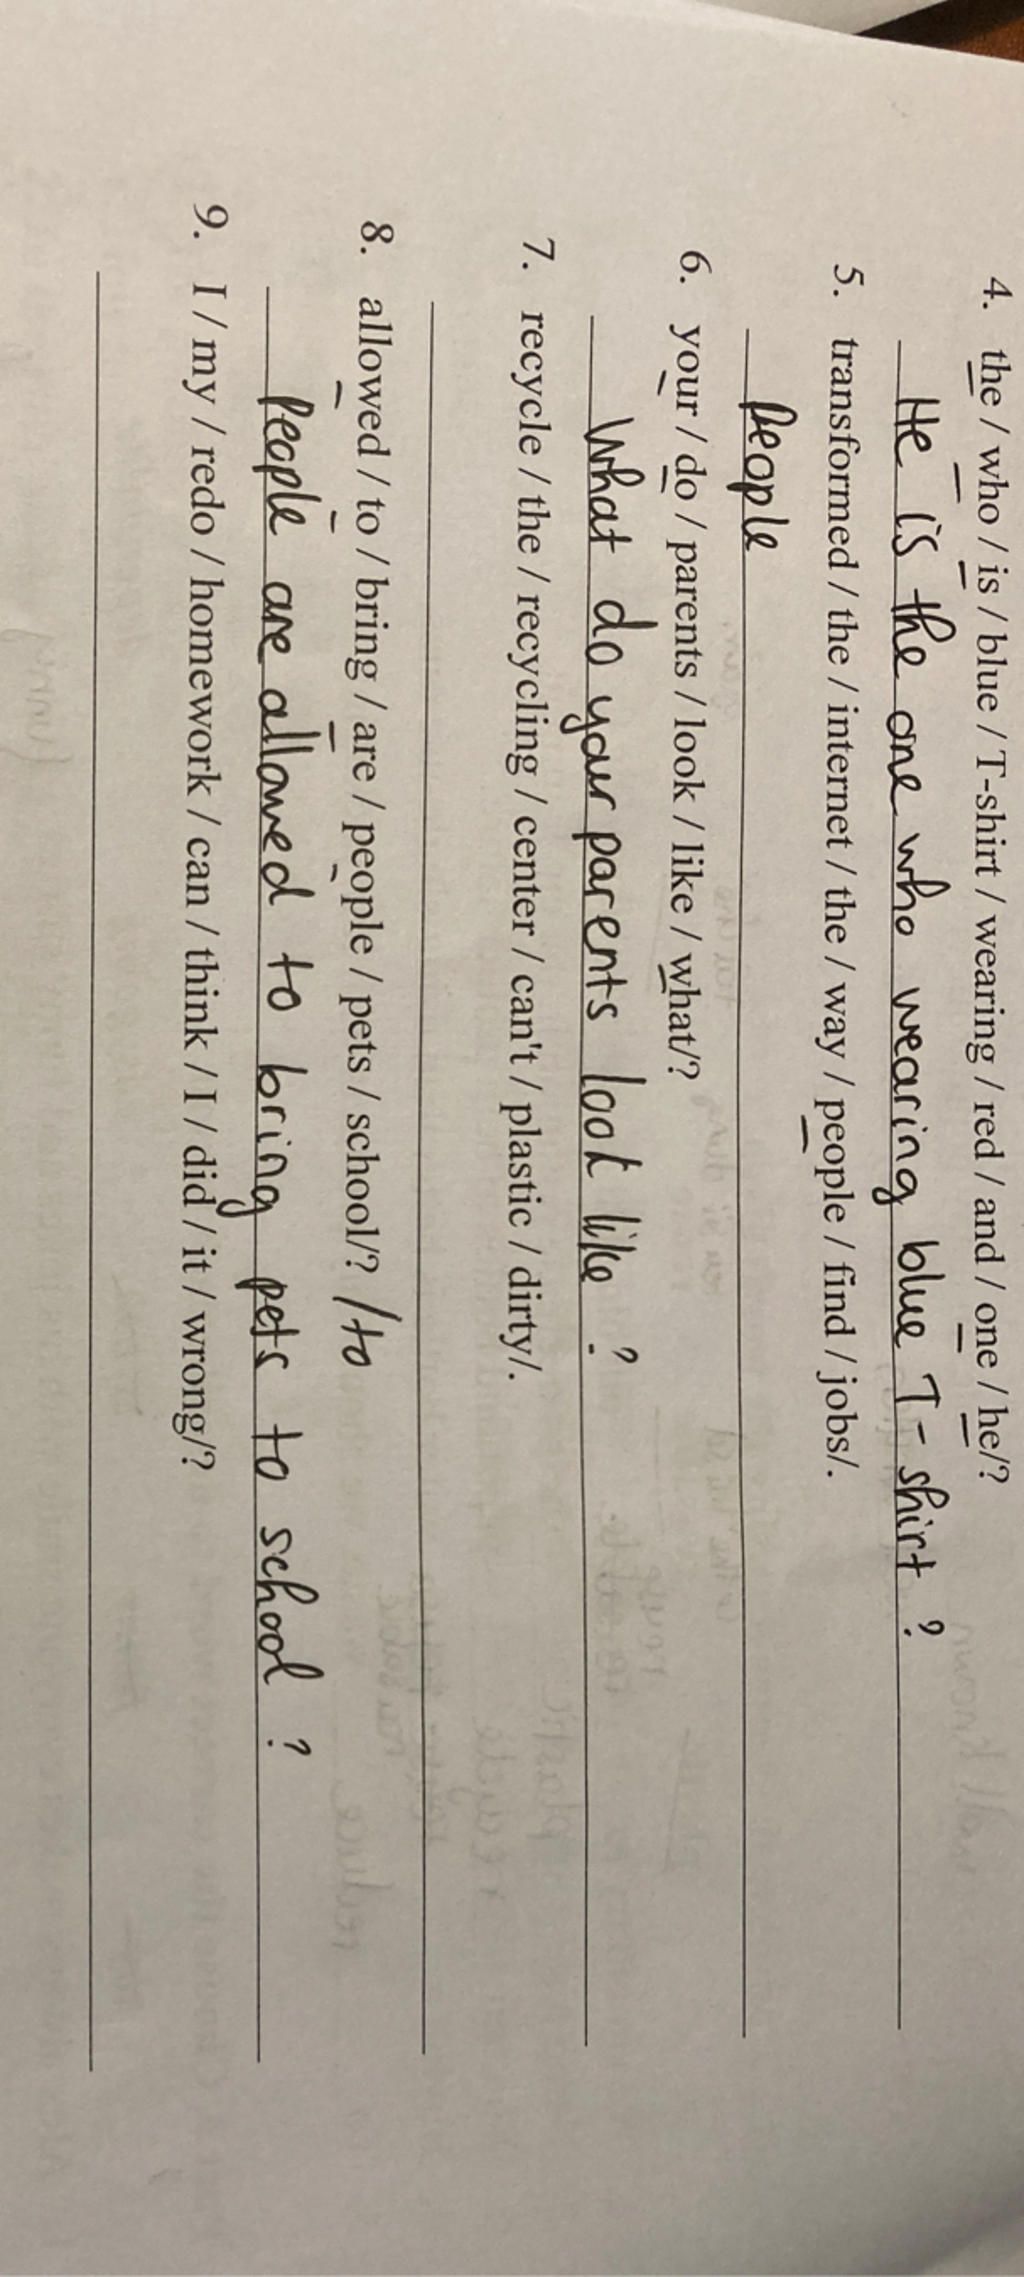 4. the / who / is / blue / T-shirt / wearing / red / and / one / he/?
He is the one who wearing blue T-shirt ?
5. transformed / the / internet / the / way / people / find / jobs/.
People
6. your / do / parents / look / like / what/?
What do your parents look like ?
7. recycle / the / recycling / center / can't / plastic / dirty/.
8. allowed / to / bring / are / people / pets / school/? /to
People are allowed to bring pets to school ?
9. I / my / redo / homework / can / think / I / did / it / wrong/?